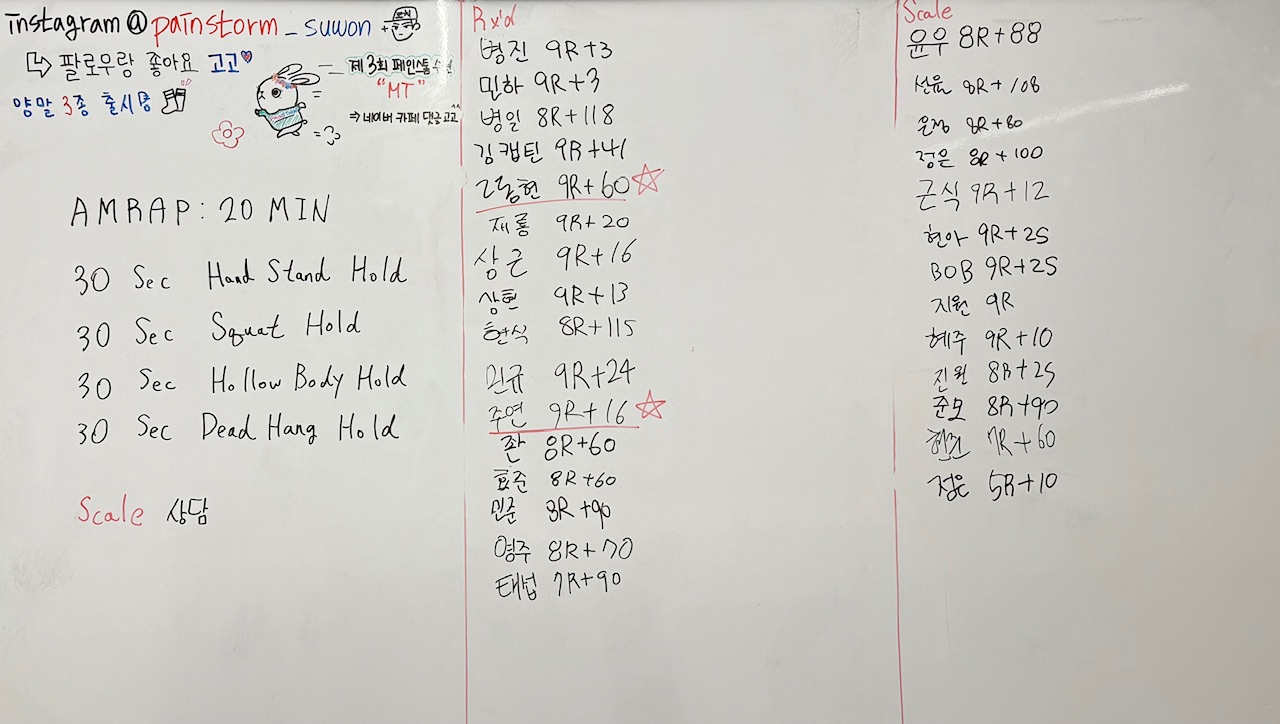 instagram@painstorm_suwon
팔로우랑 좋아요 고고
양말 3종 출시중
제3회 페인스톰
"MT"
⇒ 네이버 카페 댓글고고^^
AMRAP: 20 MIN
30 Sec Hand Stand Hold
30 Sec Squat Hold
30 Sec Hollow Body Hold
30 Sec Dead Hang Hold
Scale 상담
Rx'd
병진 9R+3
민하 9R+3
병일 8R+118
김캡틴 9R+41
그동현 9R+60
재룡 9R+20
상근 9R+16
상현 9R+13
현식 8R+115
민규 9R+24
주연 9R+16
좐 8R+60
효준 8R+60
민준 8R+90
영주 8R+70
태섭 7R+90
Scale
윤우 8R+88
선율 8R+108
은정 8R+80
정은 8R+100
근식 9R+12
현아 9R+25
BOB 9R+25
지원 9R
혜주 9R+10
진원 8R+25
준모 8R+90
7R+60
정은 5R+10